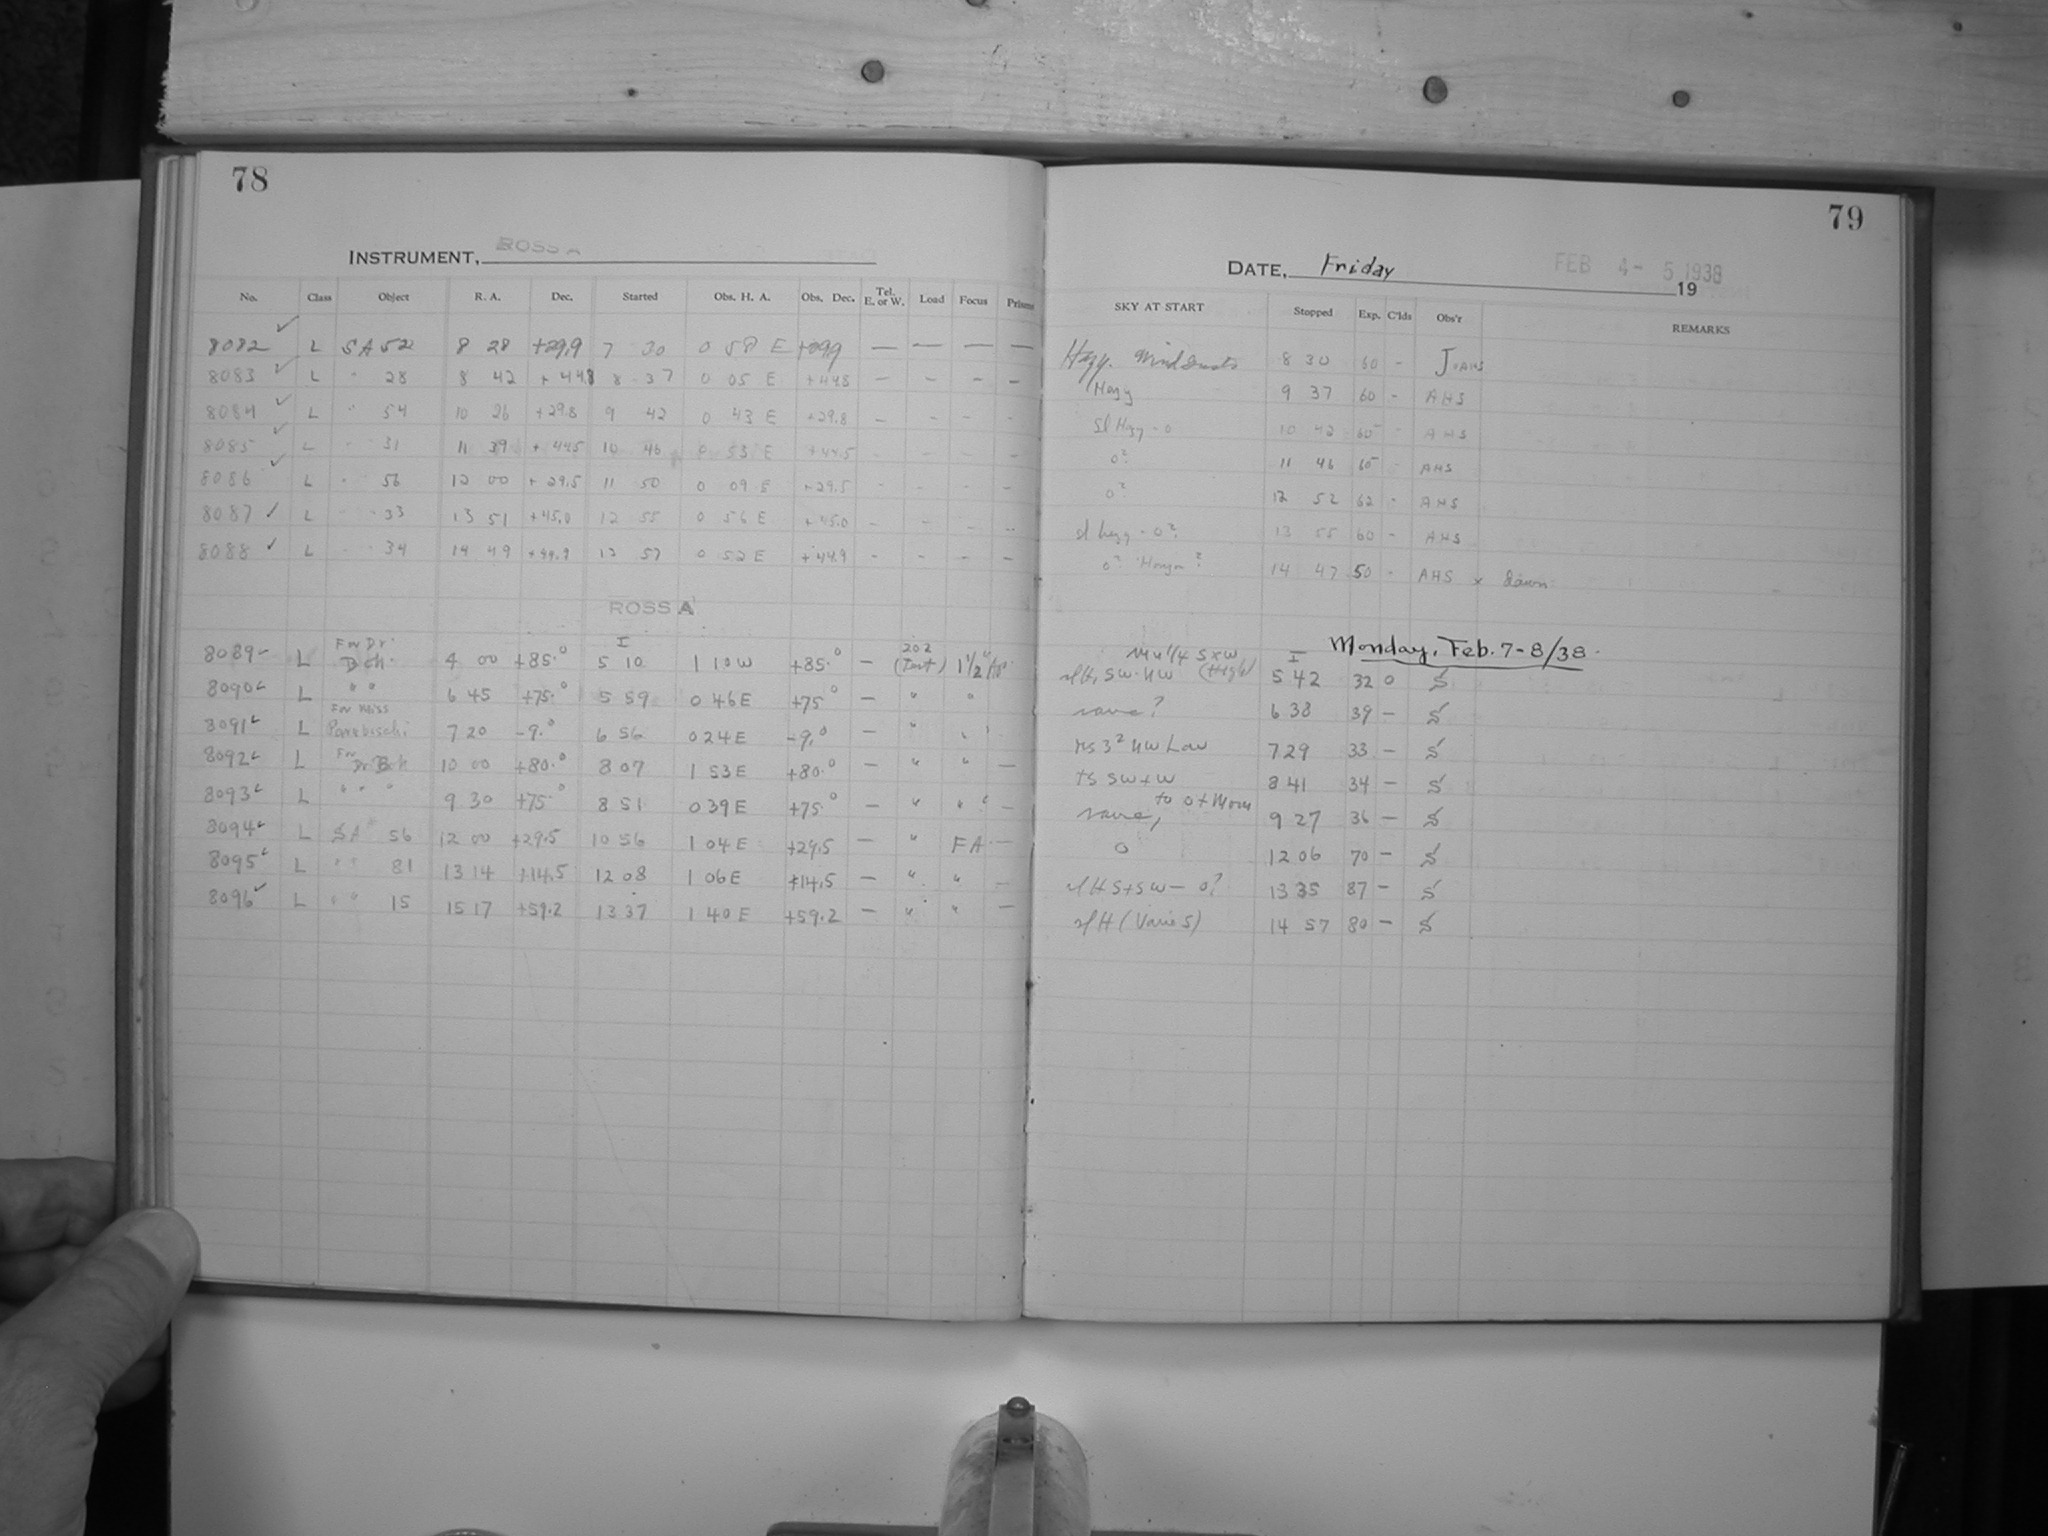 78
INSTRUMENT, ROSS A
No. Class Object R. A. Dec. Started Obs. H. A. Obs. Dec. Tel. E. or W. Load Focus Prisms
8082 ✓ L SA 52 8 28 +29.9 7 30 0 58 E +299 — — — —
8083 ✓ L " 28 8 42 +44.8 8 37 0 05 E +448 — — — —
8084 ✓ L " 54 10 26 +29.8 9 42 0 43 E +29.8 - - - -
8085 ✓ L " 31 11 39 +44.5 10 46 0 53 E +44.5 - - - -
8086 ✓ L " 56 12 00 +29.5 11 50 0 09 E +29.5 - - - -
8087 ✓ L " 33 13 51 +45.0 12 55 0 56 E +45.0 - - - -
8088 ✓ L " 34 14 49 +44.9 13 57 0 52 E +44.9 - - - -
ROSS A
8089 ✓ L For Dr. Bok. 4 00 +85.° I 5 10 1 10 W +85.° — 202 (Test) 1 1/2
8090 ✓ L " " 6 45 +75.° 5 59 0 46 E +75° — " "
8091 ✓ L For Miss 7 20 -9.° 6 56 0 24 E -9.° — " "
8092 ✓ L For Dr Bok 10 00 +80.° 8 07 1 53 E +80.° — " " —
8093 ✓ L " " " 9 30 +75.° 8 51 0 39 E +75.° — " " —
8094 ✓ L SA 56 12 00 +29.5 10 56 1 04 E +29.5 — " FA —
8095 ✓ L " " 81 13 14 +14.5 12 08 1 06 E +14.5 — " " —
8096 ✓ L " " 15 15 17 +59.2 13 37 1 40 E +59.2 — " " —
79
DATE, Friday FEB 4 - 5 1938 19
SKY AT START Stopped Exp. C'lds Obs'r REMARKS
Hazy. Wind Gusts 8 30 60 -
Hazy 9 37 60 - AHS
Sl Hazy - 0 10 42 60 - AHS
0? 11 46 60 AHS
0? 12 52 62 - AHS
sl hazy - 0? 13 55 60 - AHS
0? 14 47 50 - AHS x dawn
Monday, Feb. 7-8/38.
SW-NW (High) I 5 42 32 0 S
same? 6 38 39 — S
NW Low 7 29 33 — S
SW+W 8 41 34 — S
same, to 0 + Moon 9 27 36 — S
0 12 06 70 — S
sl H S+SW — 0? 13 35 87 — S
sl H (Varies) 14 57 80 — S